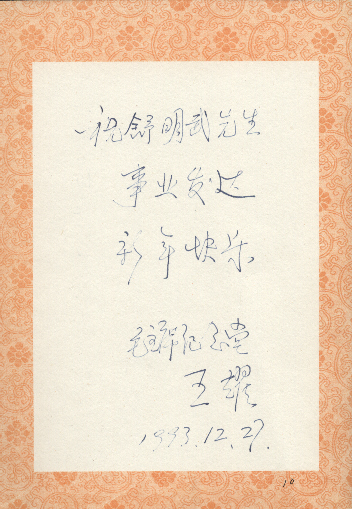 祝舒明武先生
事业发达
新年快乐
毛主席纪念堂
王耀
1993.12.27.
10